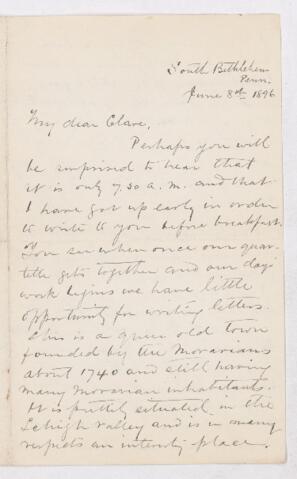 South Bethlehem
Penn.
June 8th 1896
My dear Clare,
Perhaps you will
be surprised to hear that
it is only 7.30 a.m. and that
I have got up early in order
to write to you before breakfast.
You see when once our quar-
tette gets together and our day's
work begins we have little
opportunity for writing letters.
This is a queer old town
founded by the Moravians
about 1740 and still having
many Moravian inhabitants.
It is prettily situated in the
Lehigh valley and is in many
respects an intersty place.